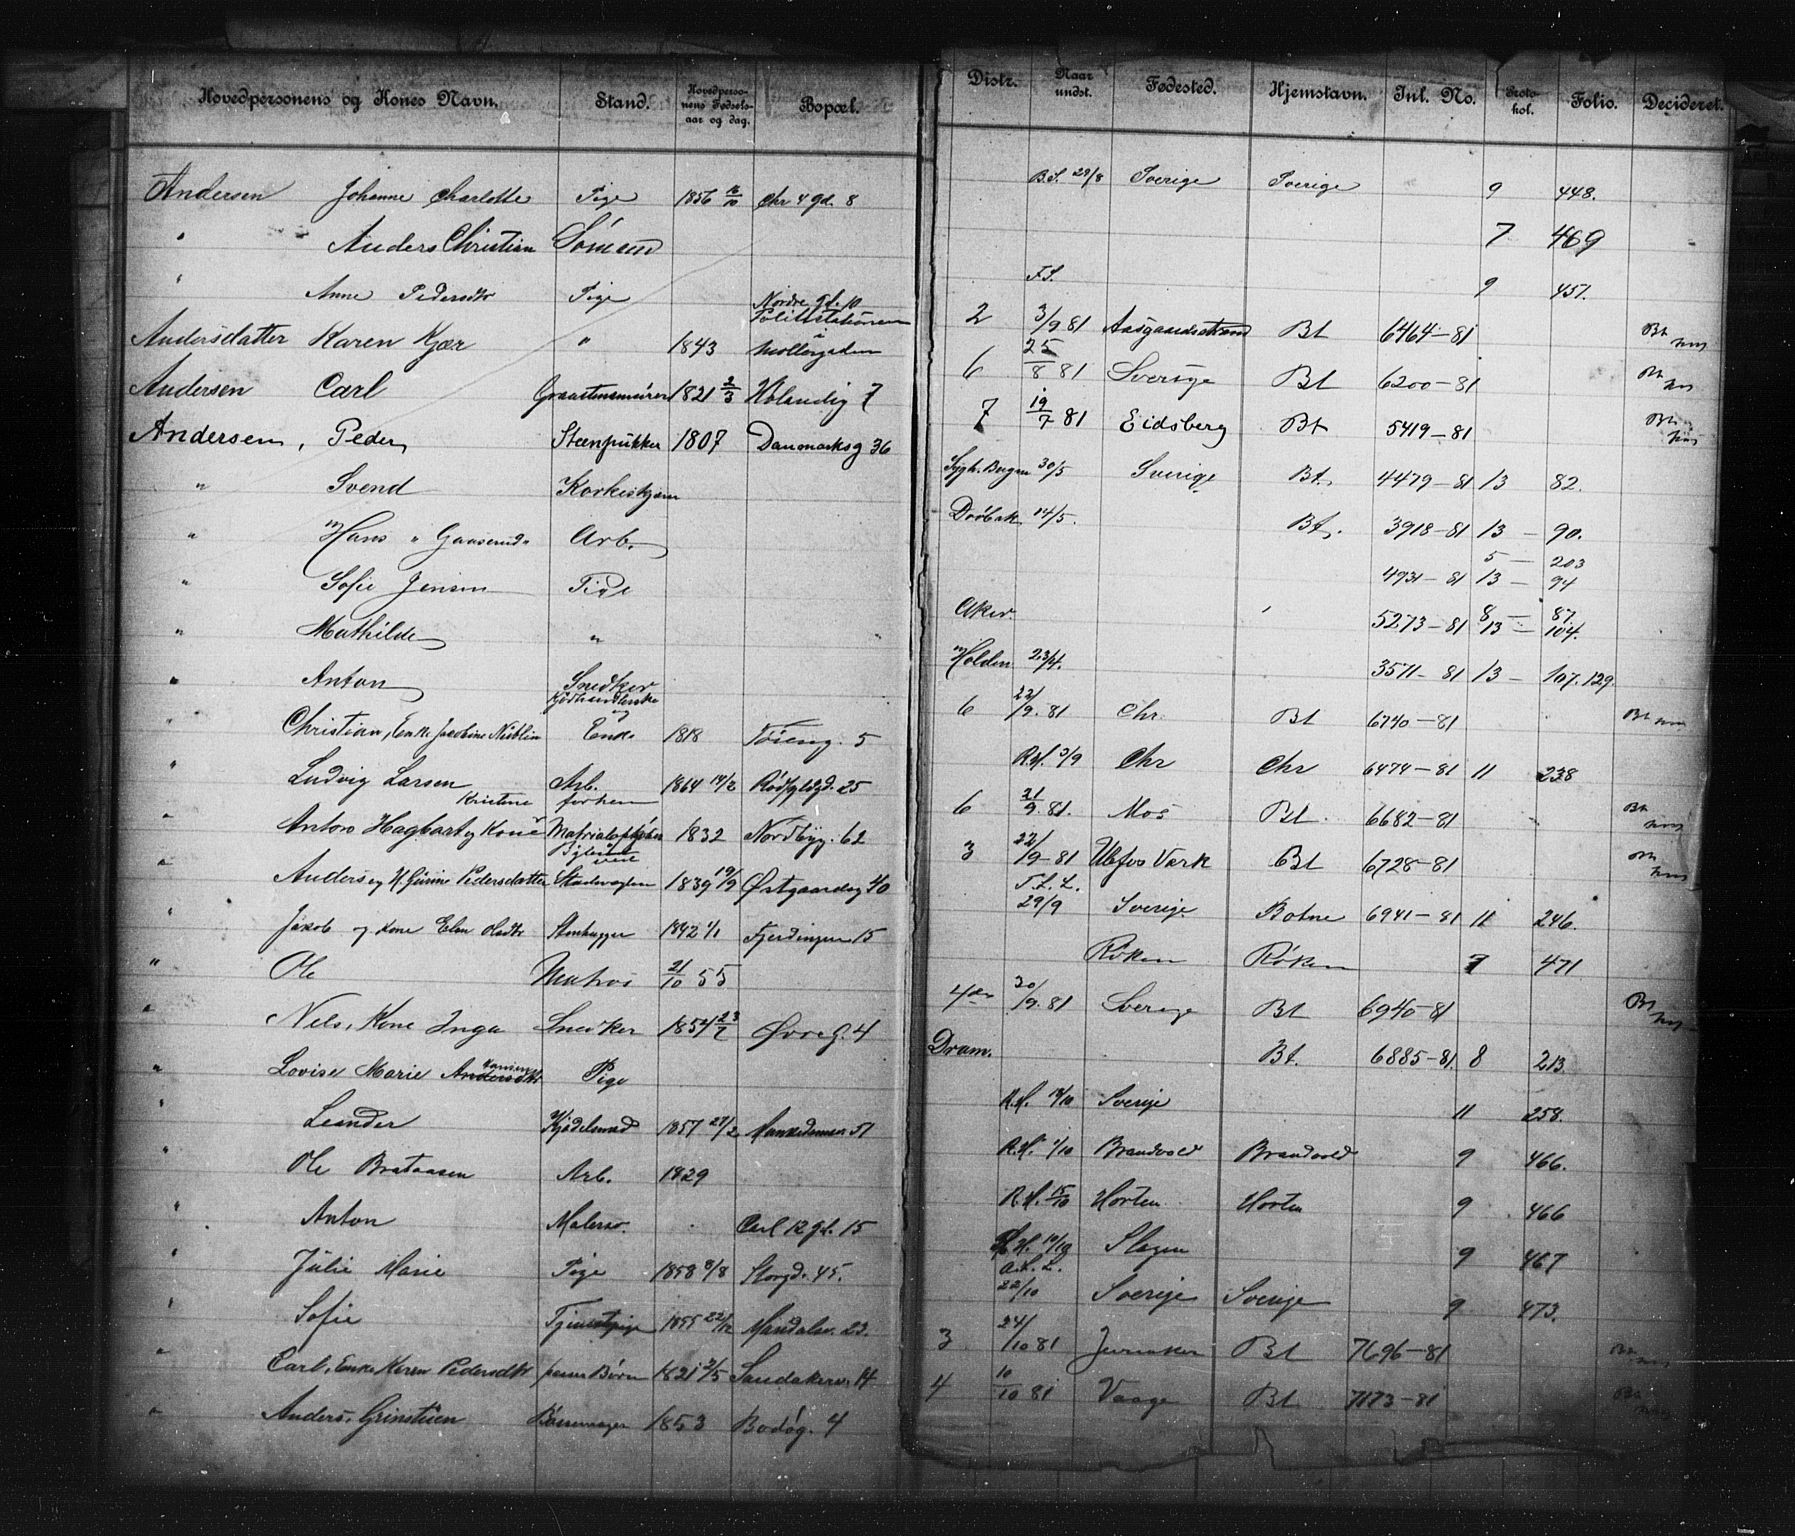 Hovedpersonens og Kones Navn. Stand. Hovedpersonens Fødselsaar og dag. Bopæl. Distr. Naar undst. Fødested. Hjemstavn. Inl. No. Protokol. Folio. Decideret.
Andersen Johanne Charlotte Pige 1856 Chr 4 gd. 8 B.S. 29/8 Sverige Sverige 9 448.
" Anders Christian Sømand 7 469
" Anne Pedersdtr Pige Nordre gd. 10 F.S. 9 457.
Andersdatter Karen Kjær " 1843 Politistationen i Møllergaden 2 3/9 81 Aasgaardsstrand Bt 6464-81 Bt
Andersen Carl 1821 2/3 7 6 25/8 81 Sverige Bt 6200-81 Bt
Andersen, Peder Steenpukker 1807 Danmarksg 36 7 19/7 81 Eidsberg Bt 5419-81 Bt
" Svend Korkeskjærer Sygh. Bergen 30/5 Sverige Bt. 4479-81 13 82.
" Hans " Gaaserud " Arb. Drøbak 14/5. Bt. 3918-81 13 - 90.
" Sofie Jensen Pige 4931-81 5 - 203 13 - 94
" Mathilde " Aker. 5273-81 8 - 87. 13 - 104.
" Anton Snedker Holden 23/4. 3571-81 13 - 107. 129.
" Christian, Enke Jacobine Enke 1818 Tøieng. 5 6 22/9. 81 Chr. Bt 6740-81 Bt
" Ludvig Larsen Arb. 1864 14/2 25 R.H. 3/9 Chr Chr 6474-81 11 238
" Anton Hagbart og Kone Kristine 1832 Nordbyg. 62 6 21/9 81. Mos Bt. 6682-81 Bt
" Anders og H. Gurine Pedersdatter 1839 19/9 Østgaardsg 40 3 22/9-81 Ulefos Værk Bt 6728-81 Bt
" Jakob og Kone Elen Olsdtr Stenhugger 1842 1/1 Fjerdingen 15 F.L.L. 29/9 Sverige Botne 6941-81 11 246.
" Ole Matros 21/10 55 Røken Røken 7 471
" Nels, Kone Inga Snedker 1854 23/7 Øvreg. 4 4de 20/9. 81 Sverige Bt 6940-81 Bt
" Lovise Marie Hansen Andersdtr Pige Dram. Bt. 6885-81. 8 213.
" Leander 1857 27/2 51 R.H. Sverige 11 258.
" Ole Brataasen Arb. 1829 R.H. 1/10 Brandvold Brandvold 9 466.
" Anton Malersv. Carl 12 gd. 15 R.H. 15/10 Horten Horten 9 466
" Julie Marie Pige 1858 8/8 Storgd. 45. R.H. Slagen 9 467
" Sofie Tjenestpige 1855 22/12 Mandalsv. 23. A.L.L. 22/10 Sverige Sverige 9 473.
" Carl, Enke Karen Pedersdtr 1821 2/5 Sandakerv. 14 3 24/10 81 Bt 7696-81
" Anders, Grinstuen Børsemager 1853 Bodøg. 4 4 10/10 81 Vaage Bt 7173-81